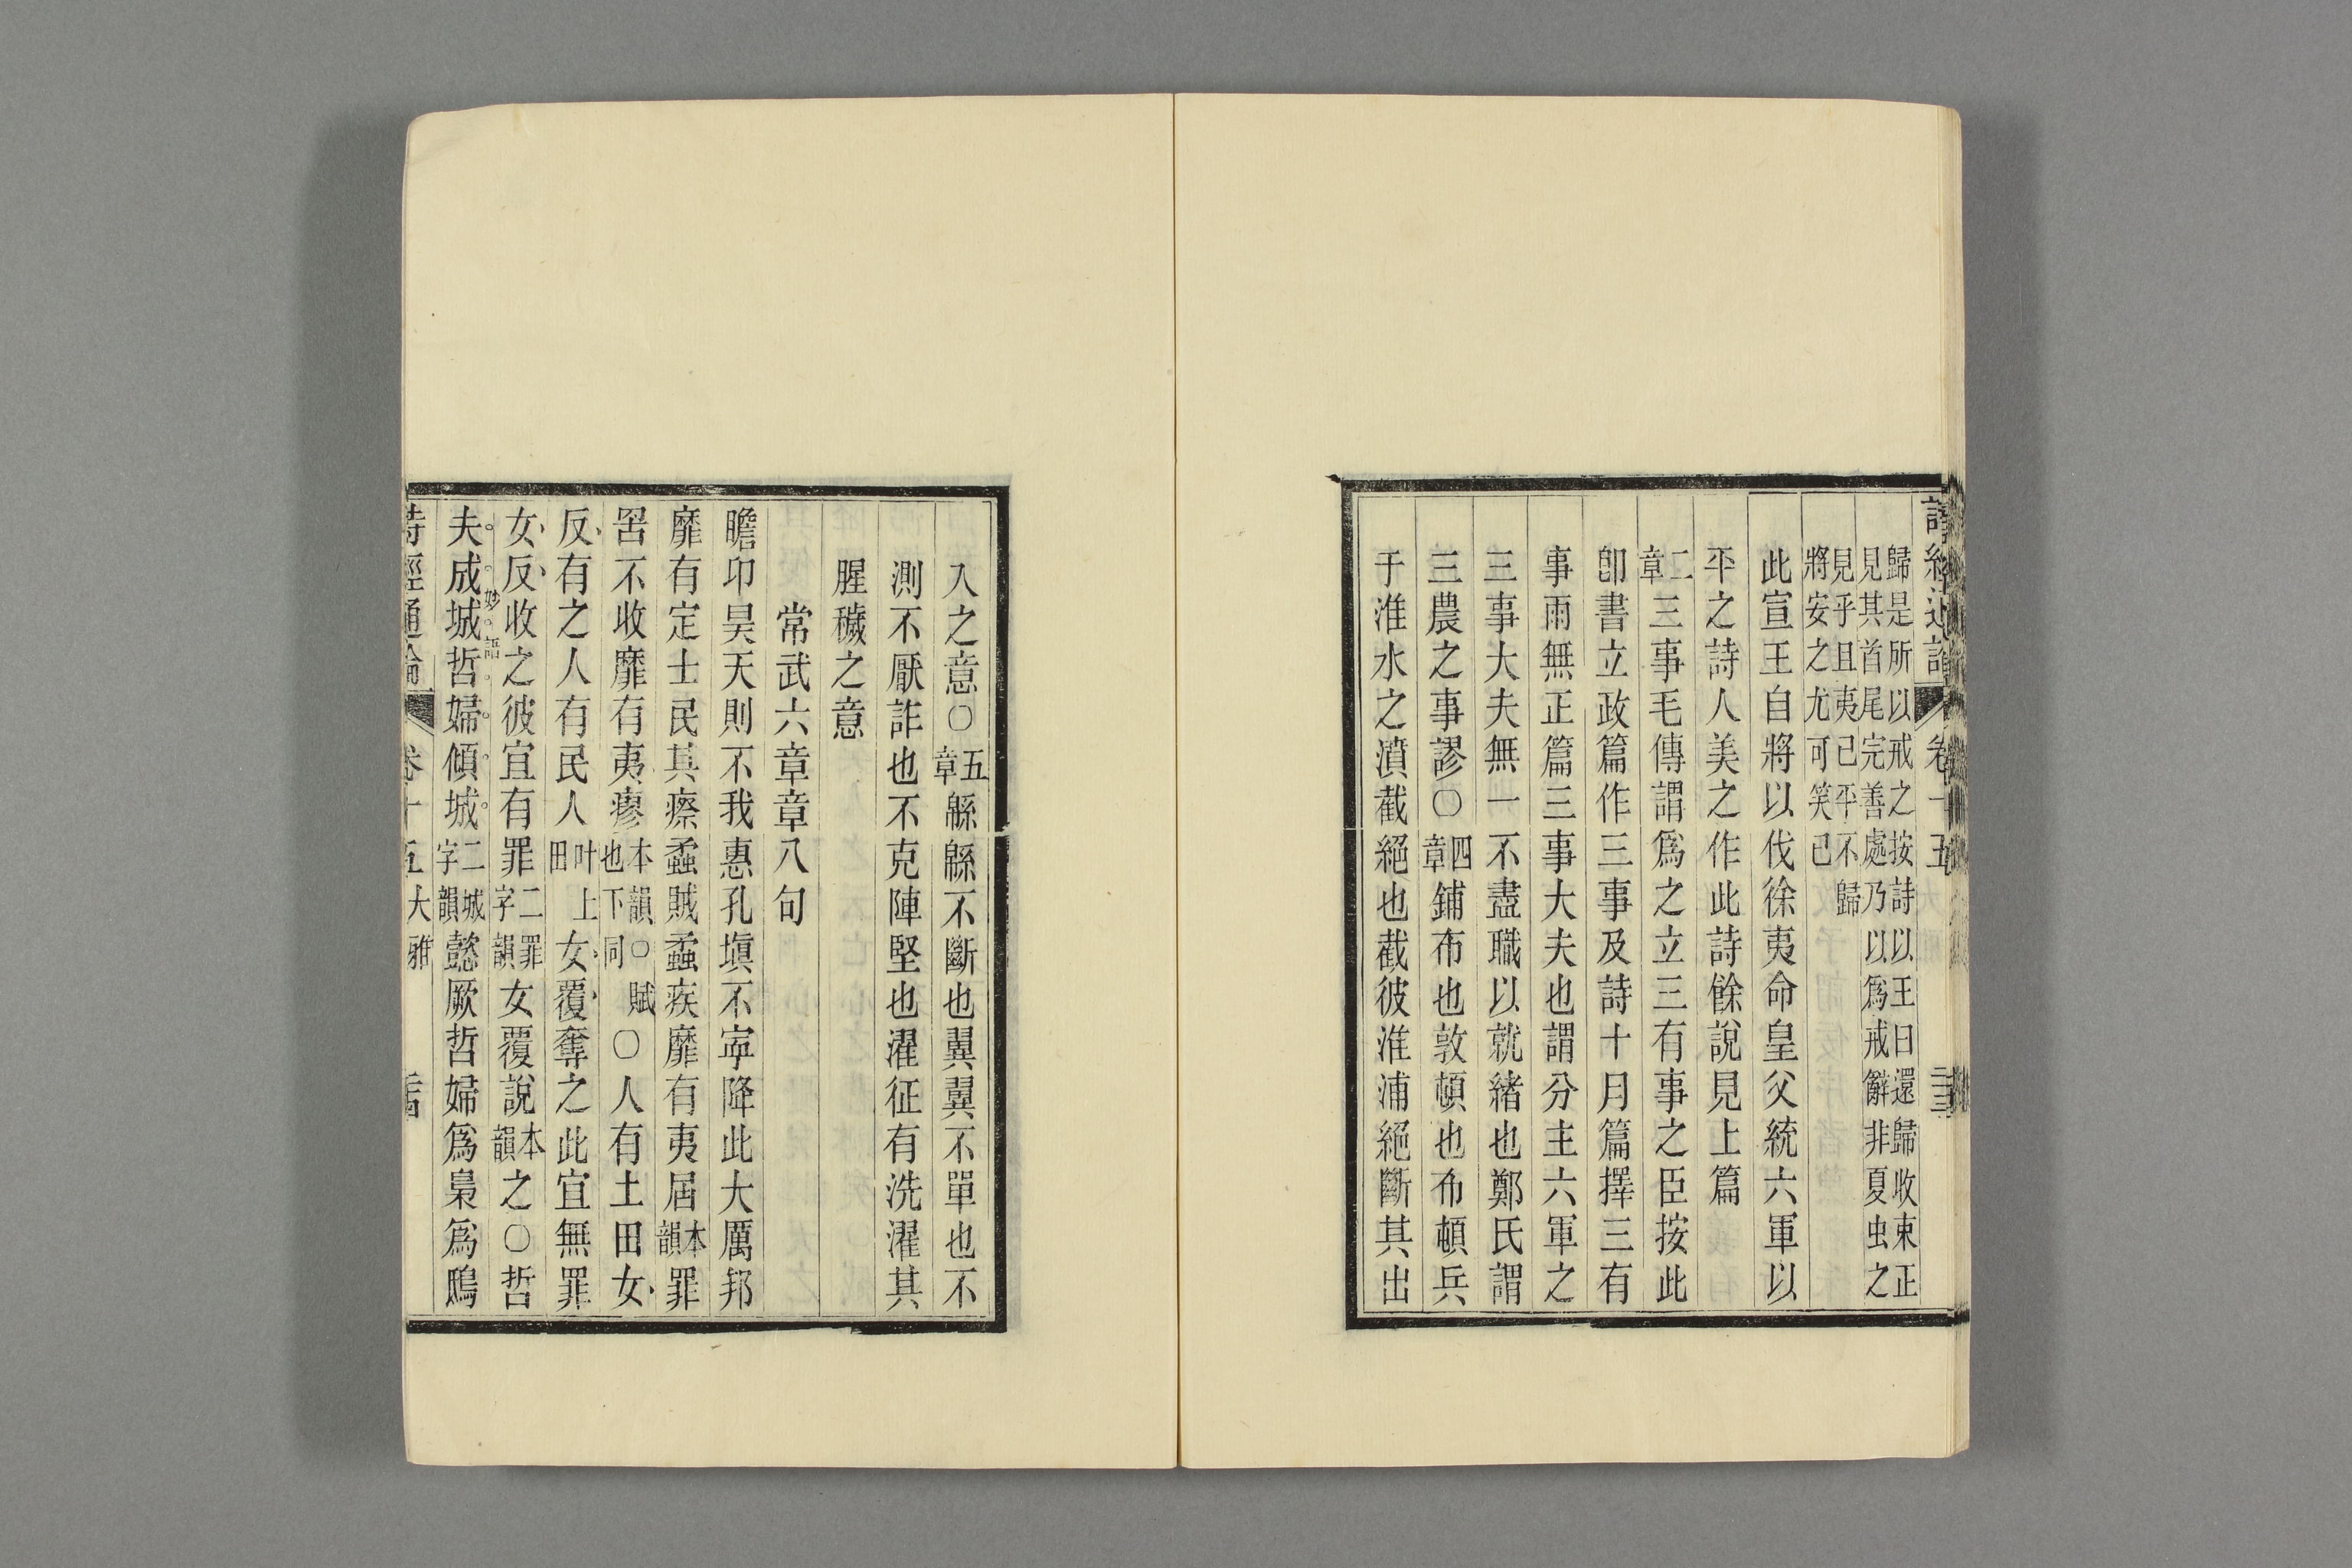 歸是所以戒之按詩以王曰還歸收束正
見其首尾完善處乃以爲戒辭非夏虫之
見乎且夷已平不歸
將安之尤可笑已
此宣王自將以伐徐夷命皇父統六軍以
平之詩人美之作此詩餘說見上篇
二章三事毛傳謂爲之立三有事之臣按此
卽書立政篇作三事及詩十月篇擇三有
事雨無正篇三事大夫也謂分主六軍之
三事大夫無一不盡職以就緒也鄭氏謂
三農之事謬〇四章鋪布也敦頓也布頓兵
于淮水之濆截絕也截彼淮浦絕斷其出
入之意〇五章緜緜不斷也翼翼不單也不
測不厭詐也不克陣堅也濯征有洗濯其
腥穢之意
常武六章章八句
瞻卬昊天則不我惠孔塡不寍降此大厲邦
靡有定士民其瘵蟊賊蟊疾靡有夷屆本韻罪
罟不收靡有夷瘳本韻〇賦也下同〇人有土田女
反有之人有民人叶上田女覆奪之此宜無罪
女反收之彼宜有罪二罪字韻女覆說本韻之〇哲
夫成城哲婦傾城二城字韻懿厥哲婦爲梟爲鴟
妙語
詩經通論 卷十五 大雅